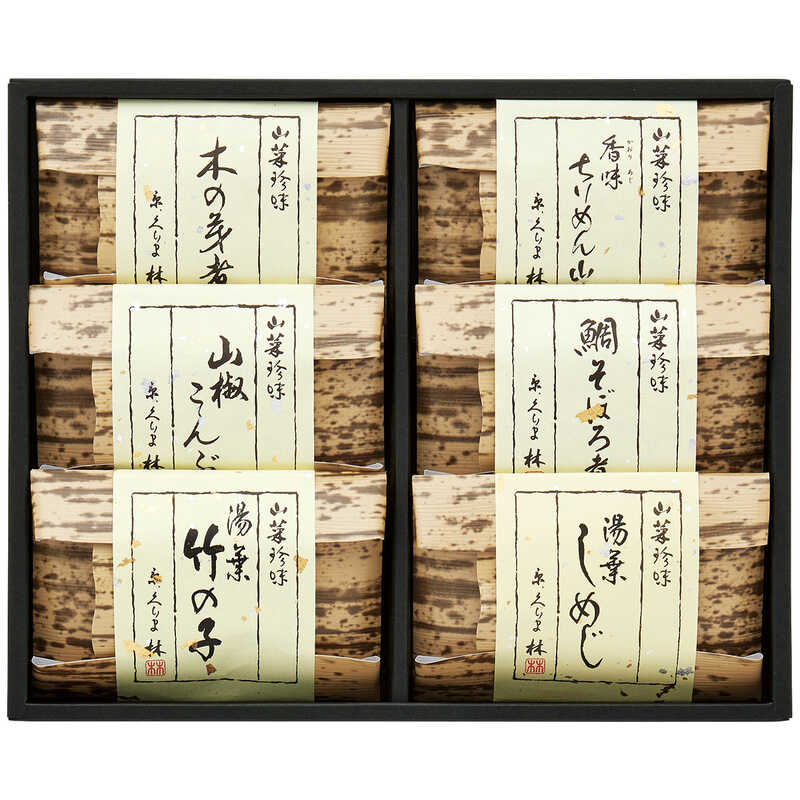 山菜珍味
木の芽煮
京くらま 林
山菜珍味
香味
かおり あじ
ちりめん山
京くらま 林
山菜珍味
山椒
こんぶ
京くらま 林
山菜珍味
鯛そぼろ煮
京くらま 林
山菜珍味
湯葉
竹の子
京くらま 林
林
山菜珍味
湯葉
しめじ
京くらま 林
林